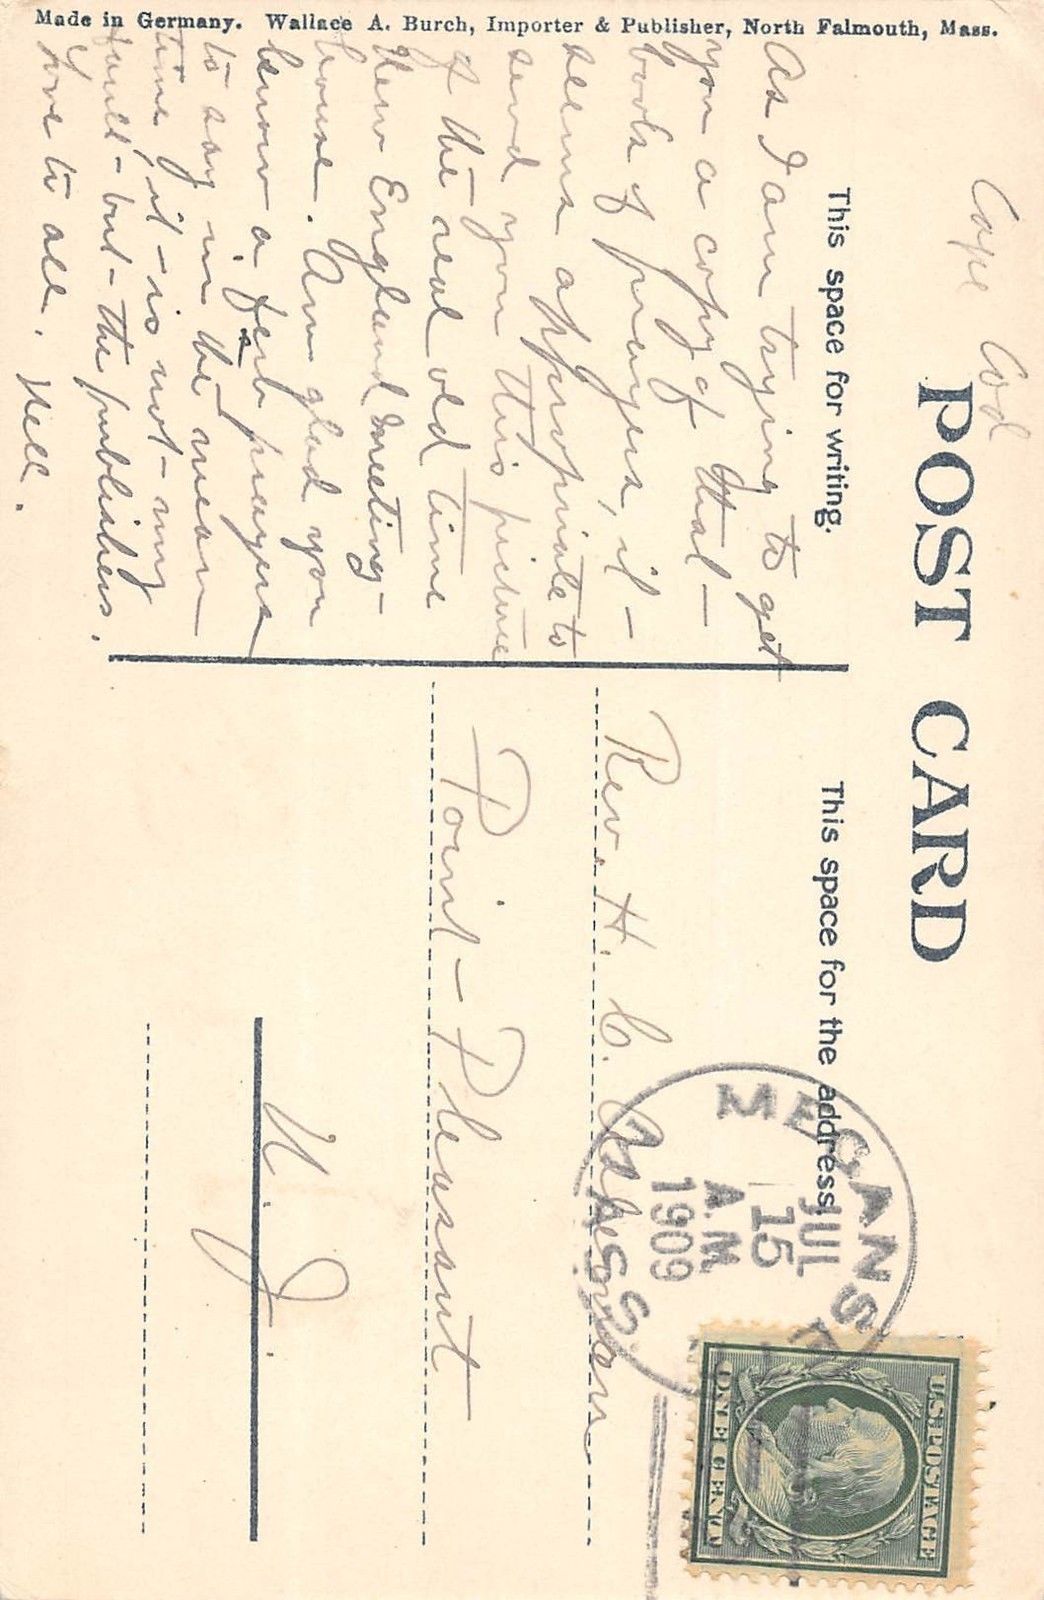 Made in Germany. Wallace A. Burch, Importer & Publisher, North Falmouth, Mass.
Cape Cod
POST CARD
This space for writing.
This space for the address.
As I am trying to get
you a copy of that
book of prayers, it
seems appropriate to
send you this picture
of the real old time
New England meeting-
house. Am glad you
know a few prayers
to say in the mean
time, it is not my
fault - but the publishers.
Love to all. Nell.
Rev. H. C.
Point Pleasant
N. J.
JUL
15
A.M.
1909
MASS.
U.S. POSTAGE
ONE CENT